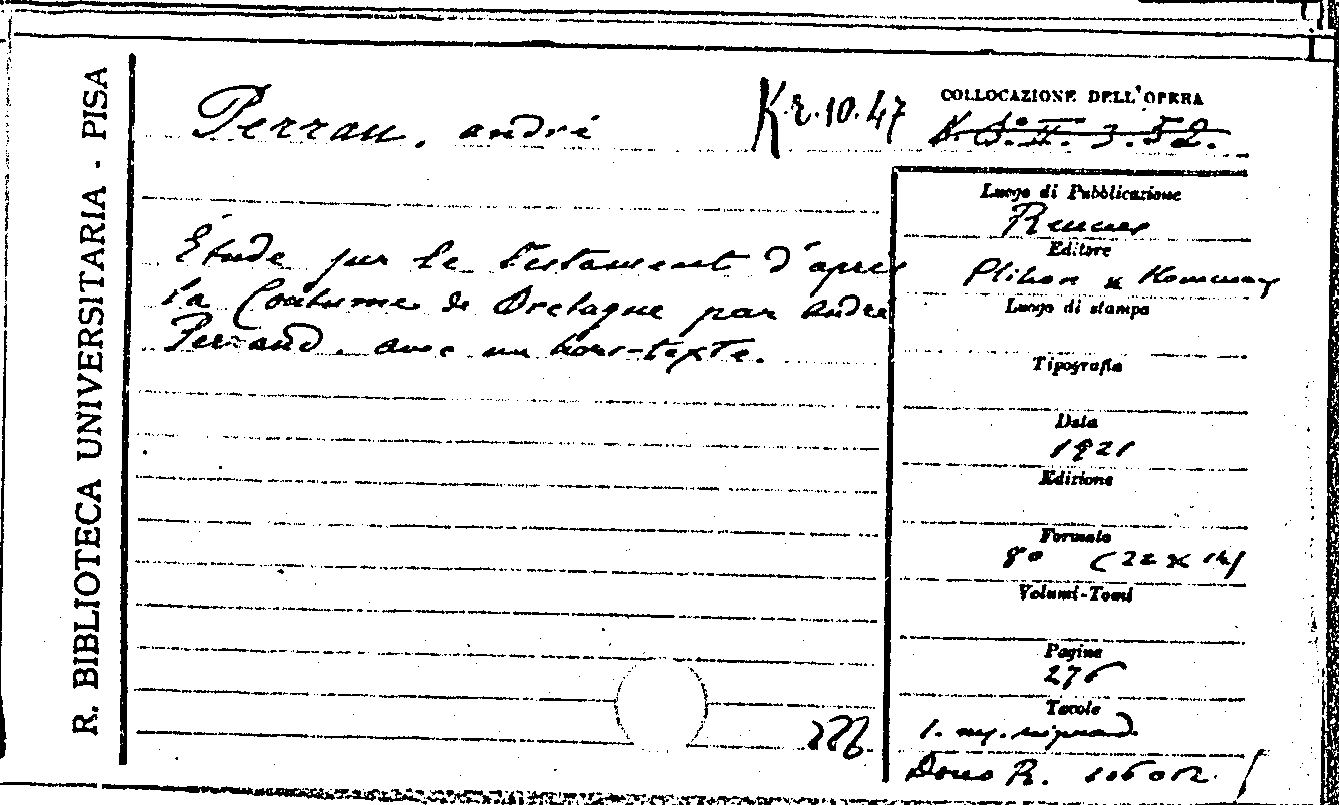 R. BIBLIOTECA UNIVERSITARIA - PISA
Perrau, André
K.2.10.47
COLLOCAZIONE DELL'OPERA
Étude sur le Testament d'après
la Coutume de Bretagne par André
Perraud. avec un hors-texte.
Luogo di Pubblicazione
Rennes
Editore
Plihon & Hommay
Luogo di stampa
Tipografia
Data
1921
Edizione
Formato
8° (22 x 14)
Volumi-Tomi
Pagine
276
Tavole
1.
Dono R.